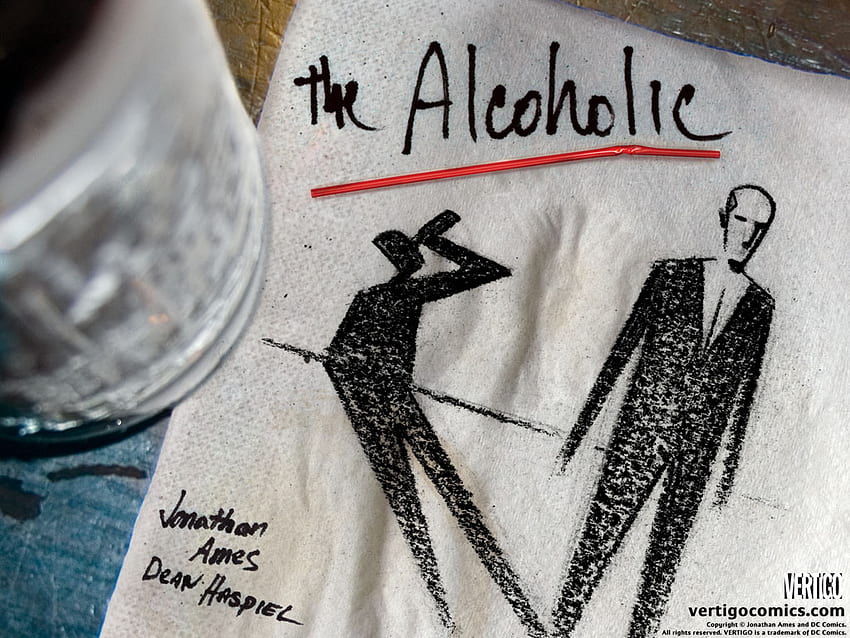 the Alcoholic
Jonathan
Ames
Dean Haspiel
VERTIGO
vertigocomics.com
Copyright © Jonathan Ames and DC Comics.
All rights reserved. VERTIGO is a trademark of DC Comics.